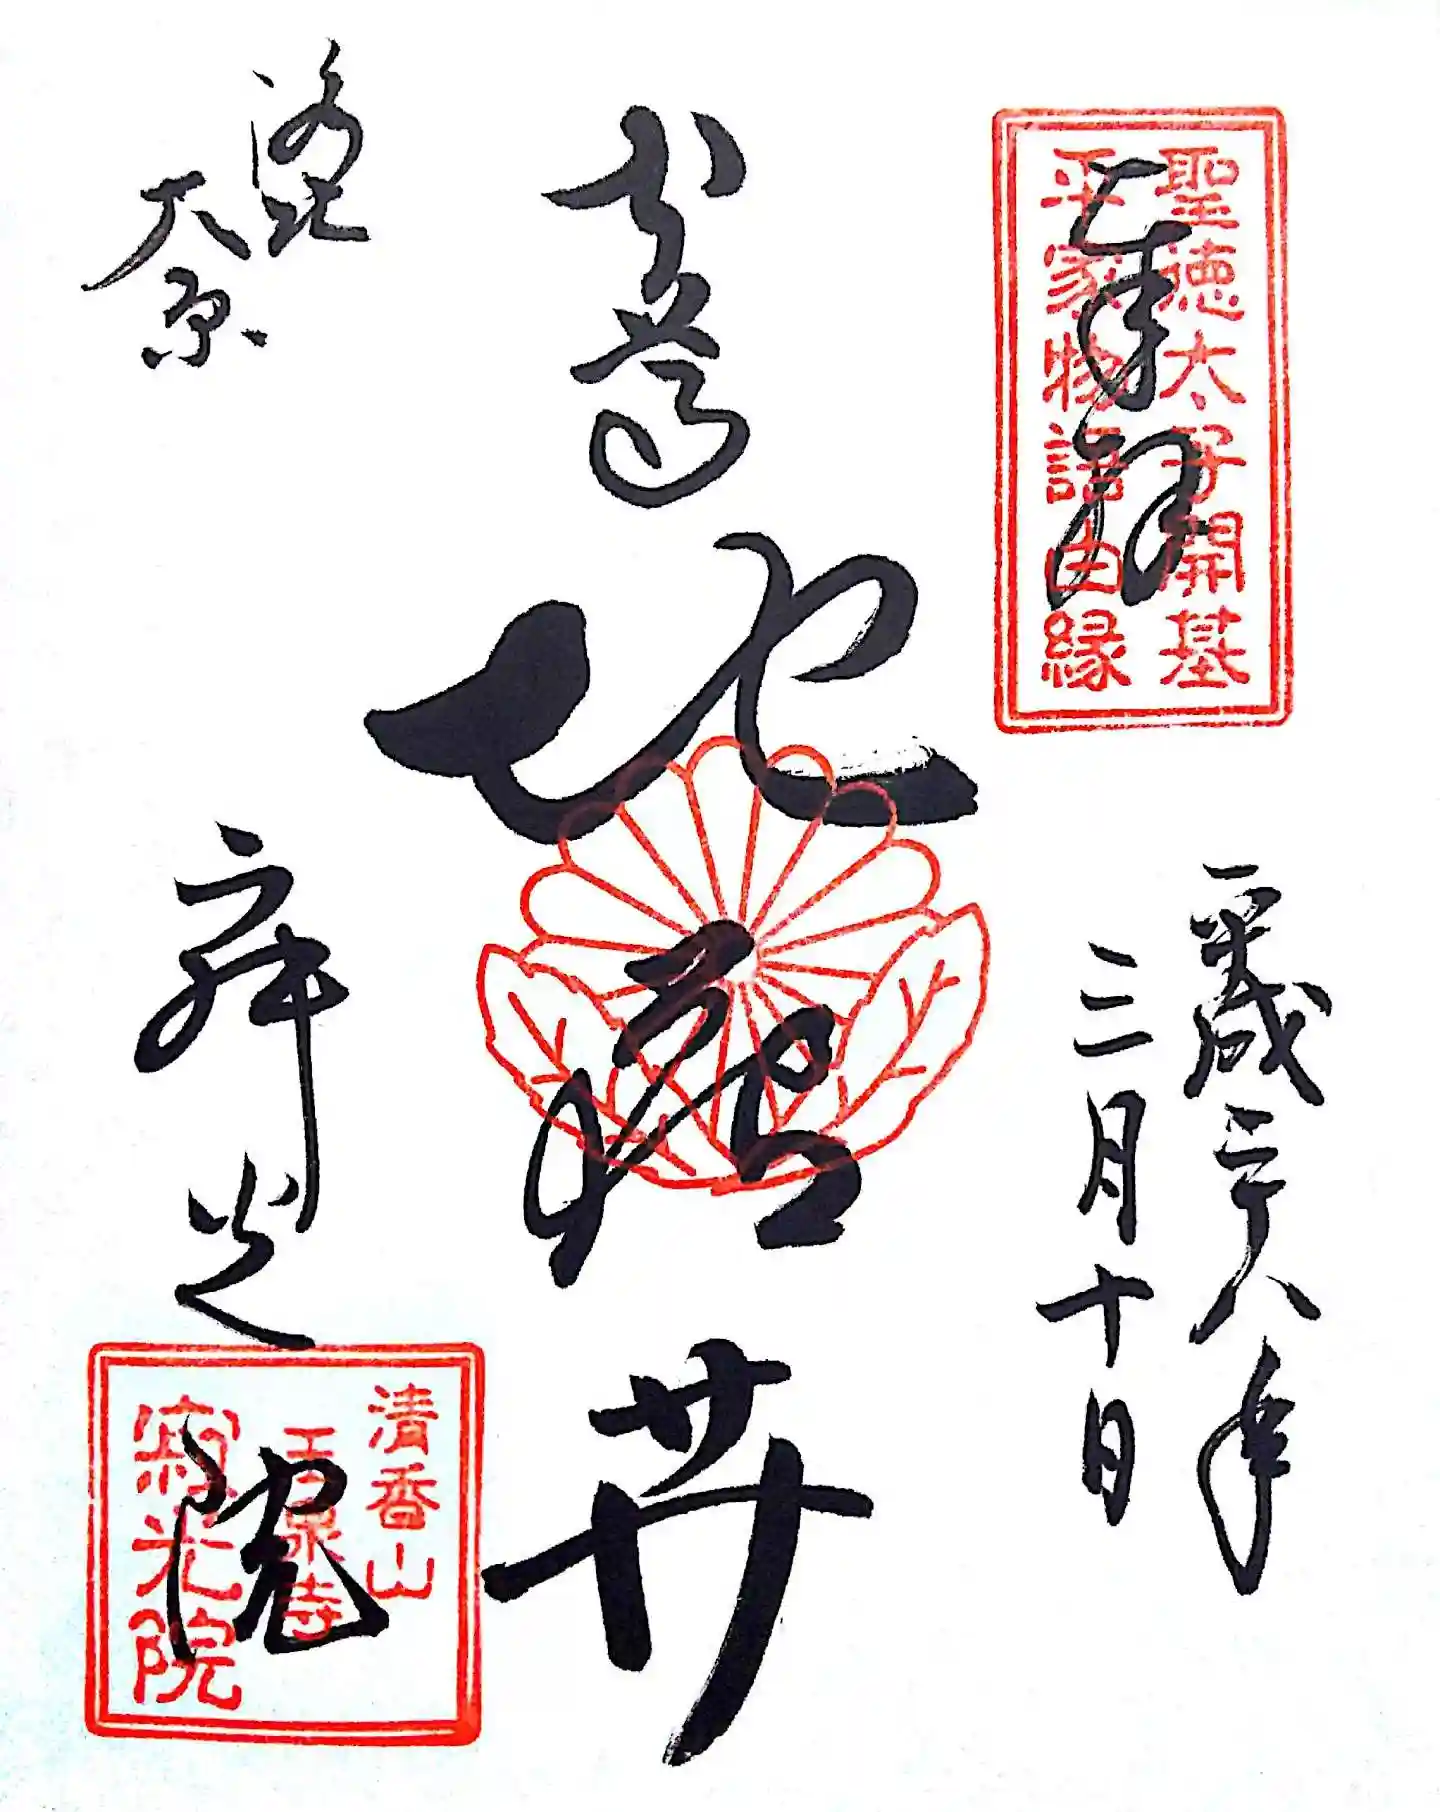 聖徳太子開基
平家物語由縁
奉拝
平成二十八年
三月十日
地蔵𦬇
洛北
大原
寂光院
清香山
玉泉寺
寂光院